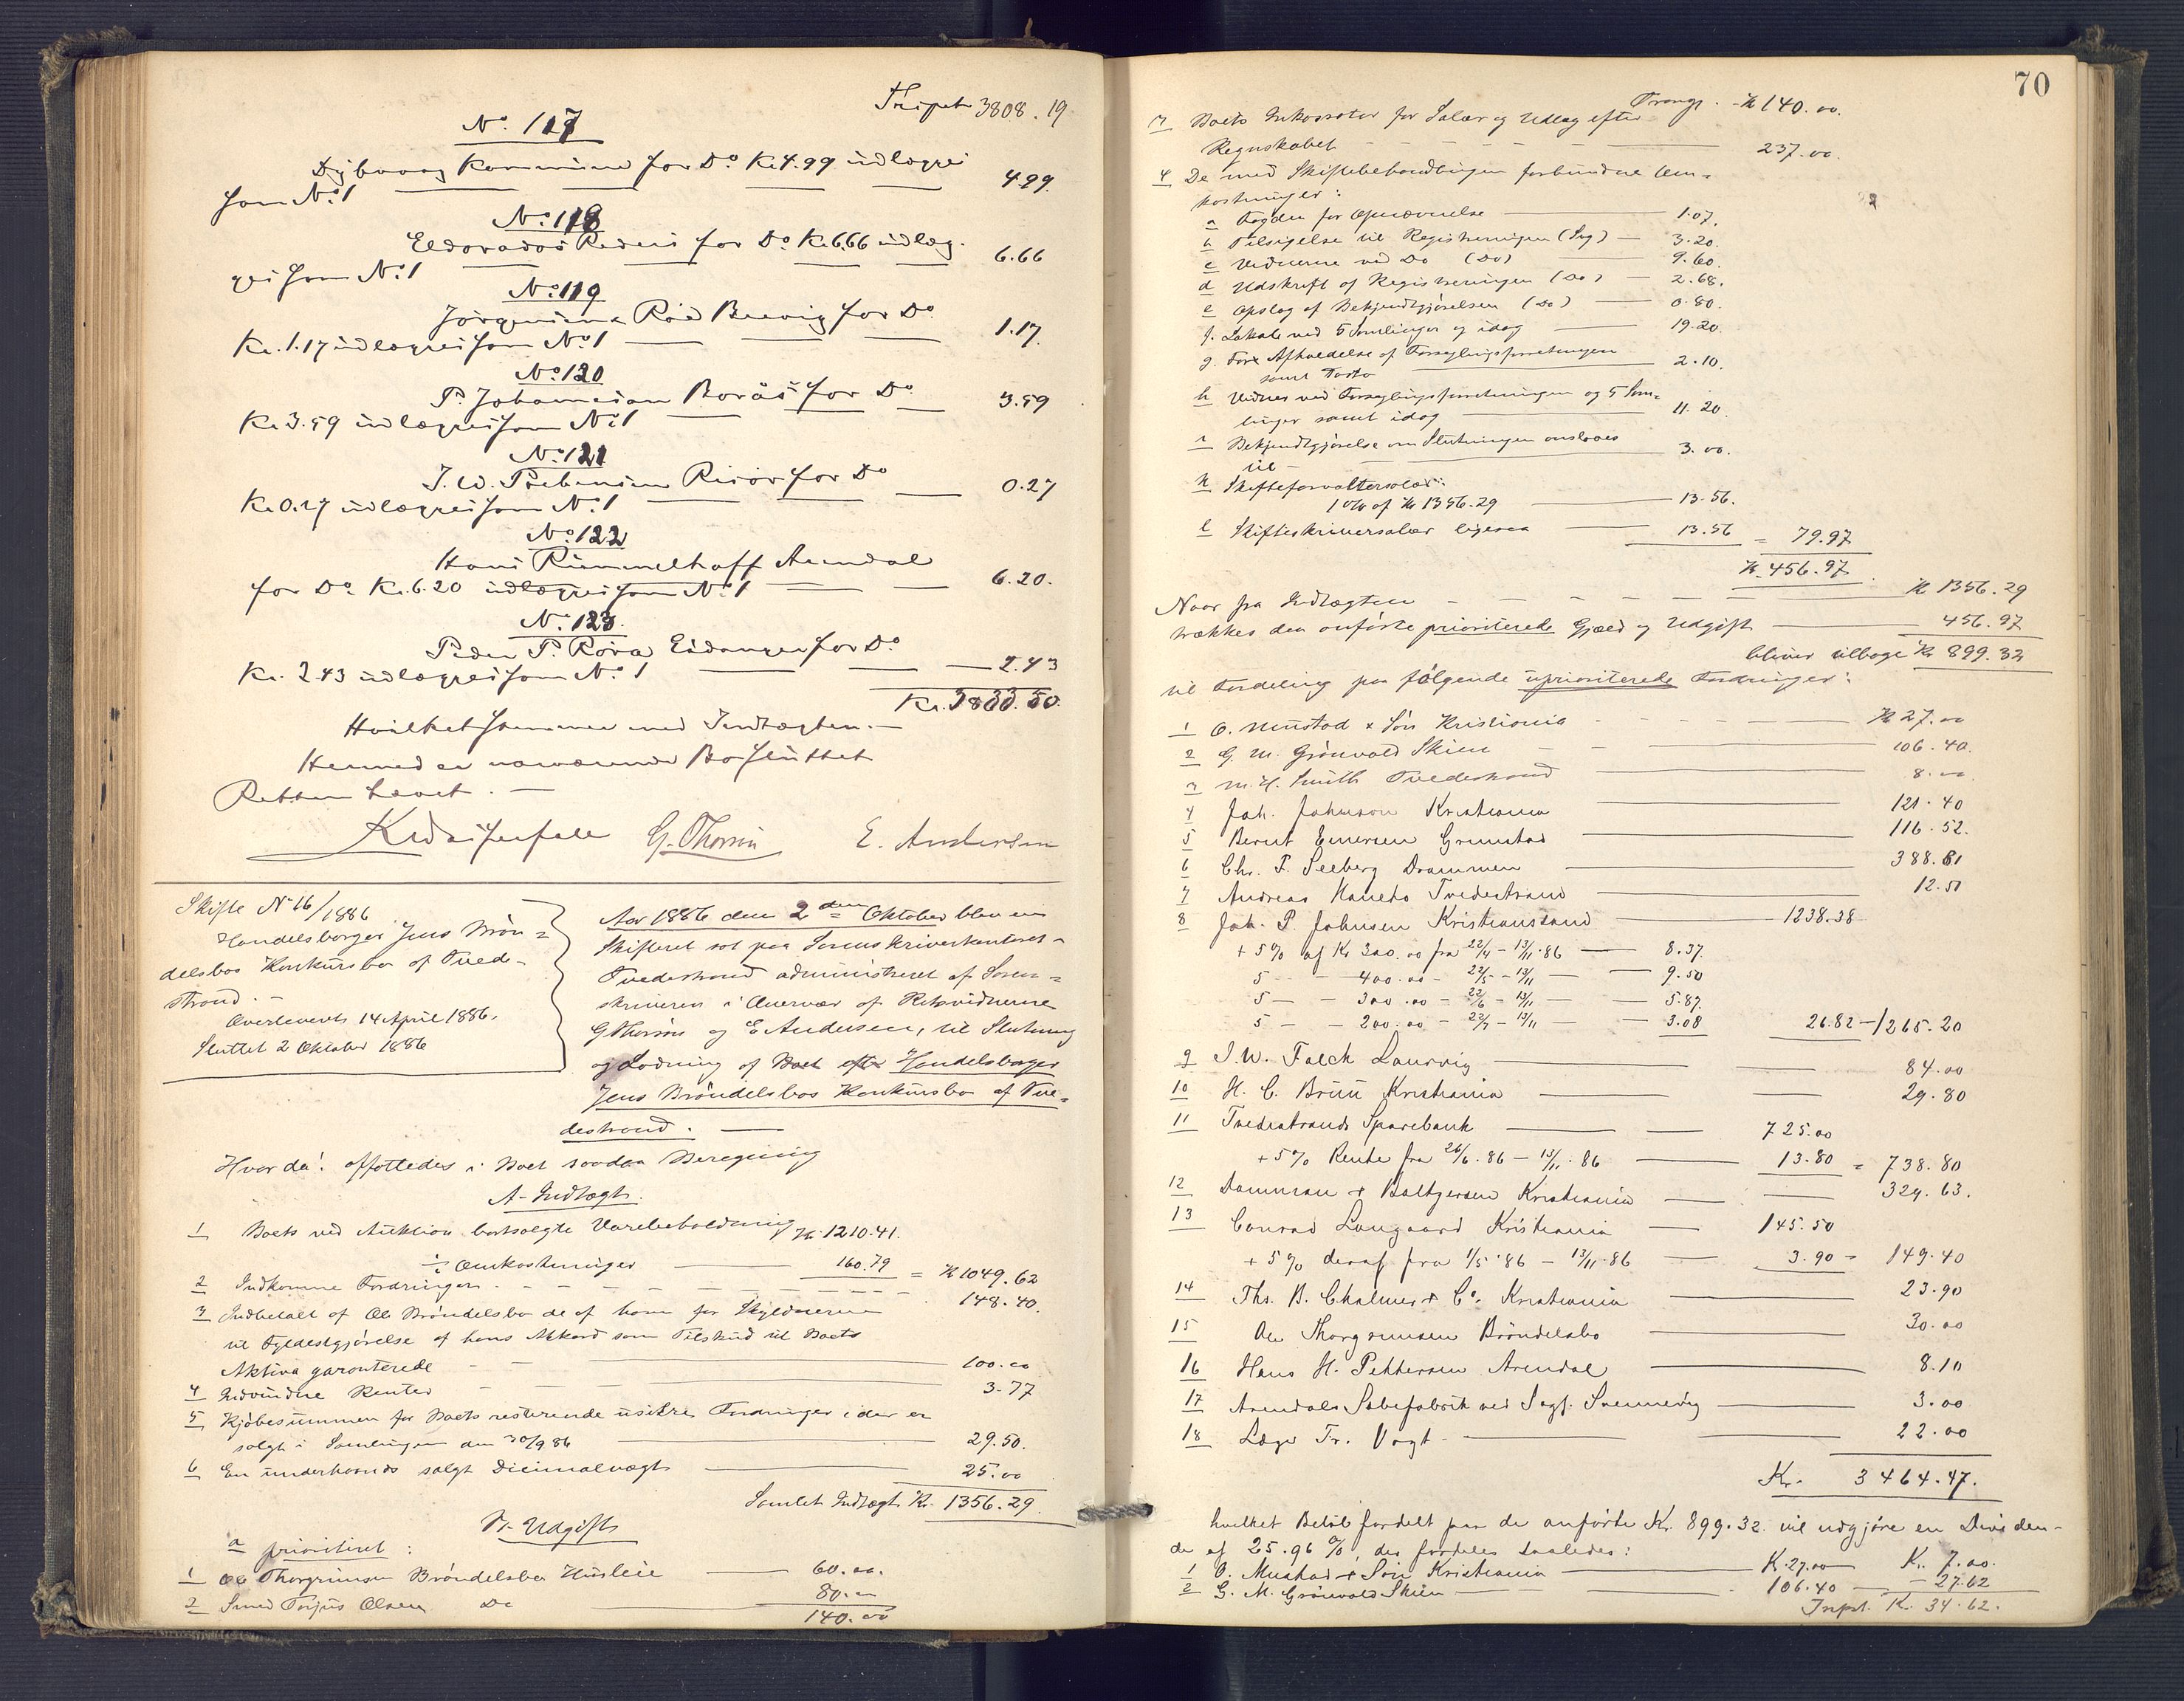 Transport 3808.19
No. 117
Dybvaag Kommune for Do Kr 4.99 udlægges
som No. 1 4.99
No. 118
Eldorados Rederi for Do Kr. 6.66 udlæg-
ges som No. 1 6.66
No. 119
Jörgensen Röd Brevig for Do
Kr. 1.17 udlægges som No 1 1.17
No. 120
P. Johannesen Borås for Do
Kr 3.59 udlægges som No. 1 3.59
No. 121
J. W. Prebensen Risör for Do
Kr. 0.27 udlægges som No. 1 0.27
No. 122
Hans Rümmelhoff Arendal
for Do Kr. 6.20 udlægges som No. 1 6.20.
No. 123.
Peder P. Röra Eidanger for Do.
Kr. 2.43 udlægges som No. 1 2.43
Kr. 3833.50.
Hvilket stemmer med Indtægten.
Hermed er nærværende Bo sluttet
Retten hævet.
G. Thorsen E. Andersen
Skifte No 16/1886
Handelsborger Jens Brön-
delsbos Konkursbo af Tvede-
strand.
Overleveret 14 April 1886.
Sluttet 2 Oktober 1886
Aar 1886 den 2den Oktober blev en
Skifteret sat paa Sorenskriverkontoret i
Tvedestrand administreret af Soren-
skriveren i Overvær af Retsvidnerne
G Thorsen og E Andersen, til Slutning
og Lodning af Boet efter Handelsborger
Jens Bröndelsbos Konkursbo af Tve-
destrand.
Hvor da: opsattes i Boet saadan Beregning
A. Indtægt.
1 Boets ved Auktion bortsolgte Varebeholdning Kr 1210.41.
÷ Omkostninger 160.79 = Kr 1049.62
2 Indkomne Fordringer 148.40.
3 Indbetalt af Ole Bröndelsbo de af ham for Skyldneren
til Fyldestgjörelse af hans Akkord som Tilskud til Boets
Aktiva garanterede 100.00
4 Indvundne Renter 3.77
5 Kjöbesummen for Boets resterende usikre Fordringer i der er
solgt i Samlingen den 30/9 86 29.50.
6 En underhaands solgt Decimalvægt 25.00
Samlet Indtægt Kr. 1356.29
B. Udgift
a prioriteret:
1 Ole Thorgrimsen Bröndelsbo Husleie 60.00.
2 Smed Torjus Olsen Do 80.00
140.00
70
Transp. Kr 140.00.
3 Boets Inkassator for Salær og Udlæg efter
Regnskabet 237.00.
4 De med Skiftebehandlingen forbundne Om-
kostninger:
a Fogden for Opnævnelse 1.07.
b Tilsigelse til Registreringen (Fog) 3.20.
c Vidnerne ved Do (Do) 9.60.
d Udskrift af Registreringen (Do) 2.68.
e Opslag af Bekjendtgjörelsen (Do) 0.80.
f. Lokale ved 5 Samlinger og idag 19.20.
g. For Afholdelse af Forseglingsforretningen
samt Porto 2.10.
h Vidner ved Forseglingsforretningen og 5 Sam-
linger samt idag 11.20.
i Bekjendtgjörelse om Slutningen anslaaes
til 3.00.
k Skifteforvaltersalær:
1 0/0 af Kr 1356.29 13.56.
l Skifteskriversalær ligesaa 13.56 = 79.97
Kr. 456.97
Naar fra Indtægten Kr 1356.29
trækkes den anförte prioriterede Gjæld og Udgift 456.97
bliver tilbage Kr 899.32
til Fordeling paa fölgende uprioriterede Fordringer:
1 O. Mustad & Sön Kristiania Kr 27.00
2 G. M. Grönvold Skien 106.40.
3 M. H. Smith Tvedestrand 8.00
4 Joh. Johnson Kristiania 121.40
5 Bernt Emersen Grimstad 116.52.
6 Chr. F. Seeberg Drammen 388.81
7 Andreas Hanebo Tvedestrand 12.51
8 Joh. P. Johnsen Kristianssand 1238.38
+ 5% af Kr 300.00 fra 22/4 - 13/11.86 8.37.
5 — 400.00 - 22/5 - 13/11 9.50
5 — 300.00 - 22/6 - 13/11 5.87.
5 — 200.00 - 22/7 - 13/11 3.08 26.82 - 1265.20
9 J. W. Falck Laurvig 84.00
10 H. C. Bruu Kristiania 29.80
11 Tvedestrands Sparebank 725.00
+ 5% Rente fra 26/6.86 - 13/11.86 13.80 = 738.80
12 Dammann & Baltzersen Kristiania 329.63.
13 Conrad Langaard Kristiania 145.50
+ 5% deraf fra 1/5.86 - 13/11.86 3.90 = 149.40
14 Ths. B. Chalmer & Co. Kristiania 23.90
15 Ole Thorgrimsen Bröndelsbo 30.00
16 Hans H. Pettersen Arendal 8.10
17 Arendals Sæbefabrik ved Sagf. Svennevig 3.00
18 Læge Fr. Vogt 22.00
Kr. 3464.47.
hvilket Belöb fordelt paa de anförte Kr. 899.32 vil udgjöre en Dividen-
de af 25.96 %, der fordeles saaledes:
1 O. Mustad & Sön Kristiania Kr. 27.00 Kr. 7.00.
2 G. M. Grönvold Skien 106.40 — 27.62
Trspt. Kr. 34.62.